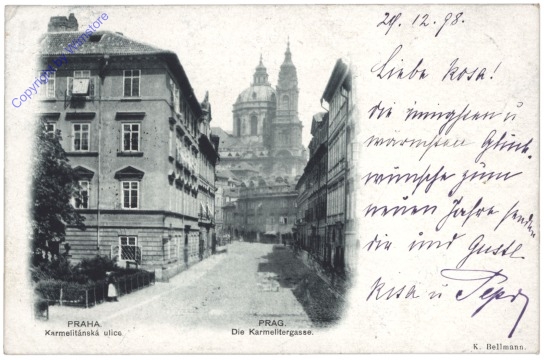 Copyright by Ansichtskartenstore
29. 12. 98.
Liebe Rosa!
die innigsten u
wärmsten Glück-
wünsche zum
neuen Jahre senden
die und Guste
Rosa u Pepi
PRAHA.
Karmelitánská ulice
PRAG.
Die Karmelitergasse.
K. Bellmann.